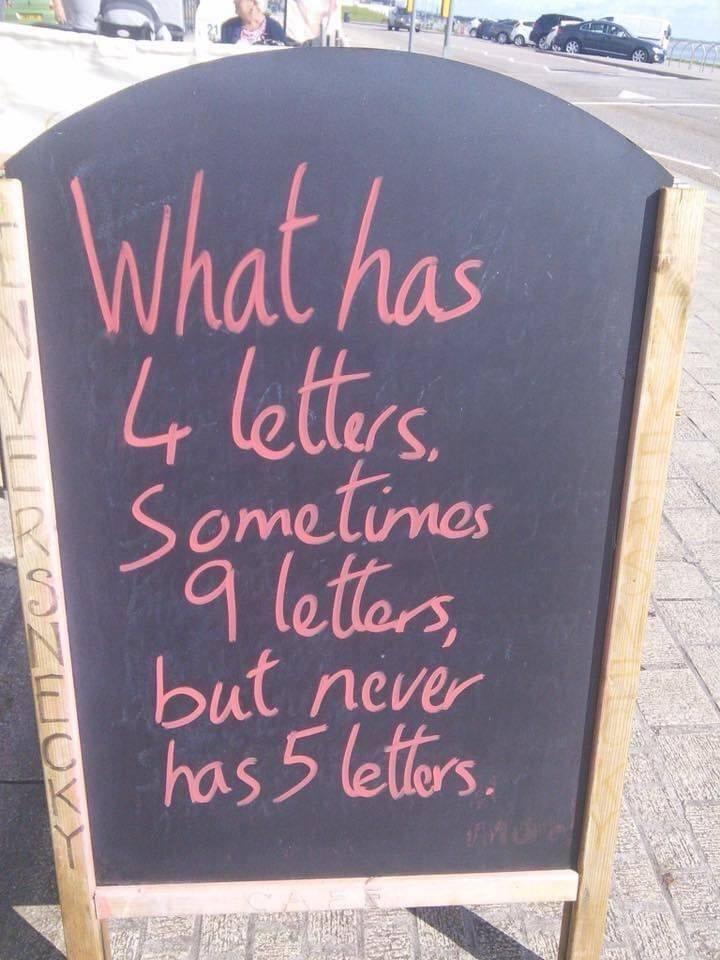 What has
4 letters,
Sometimes
9 letters,
but never
has 5 letters.
INVERSNECKY
CAFE
21